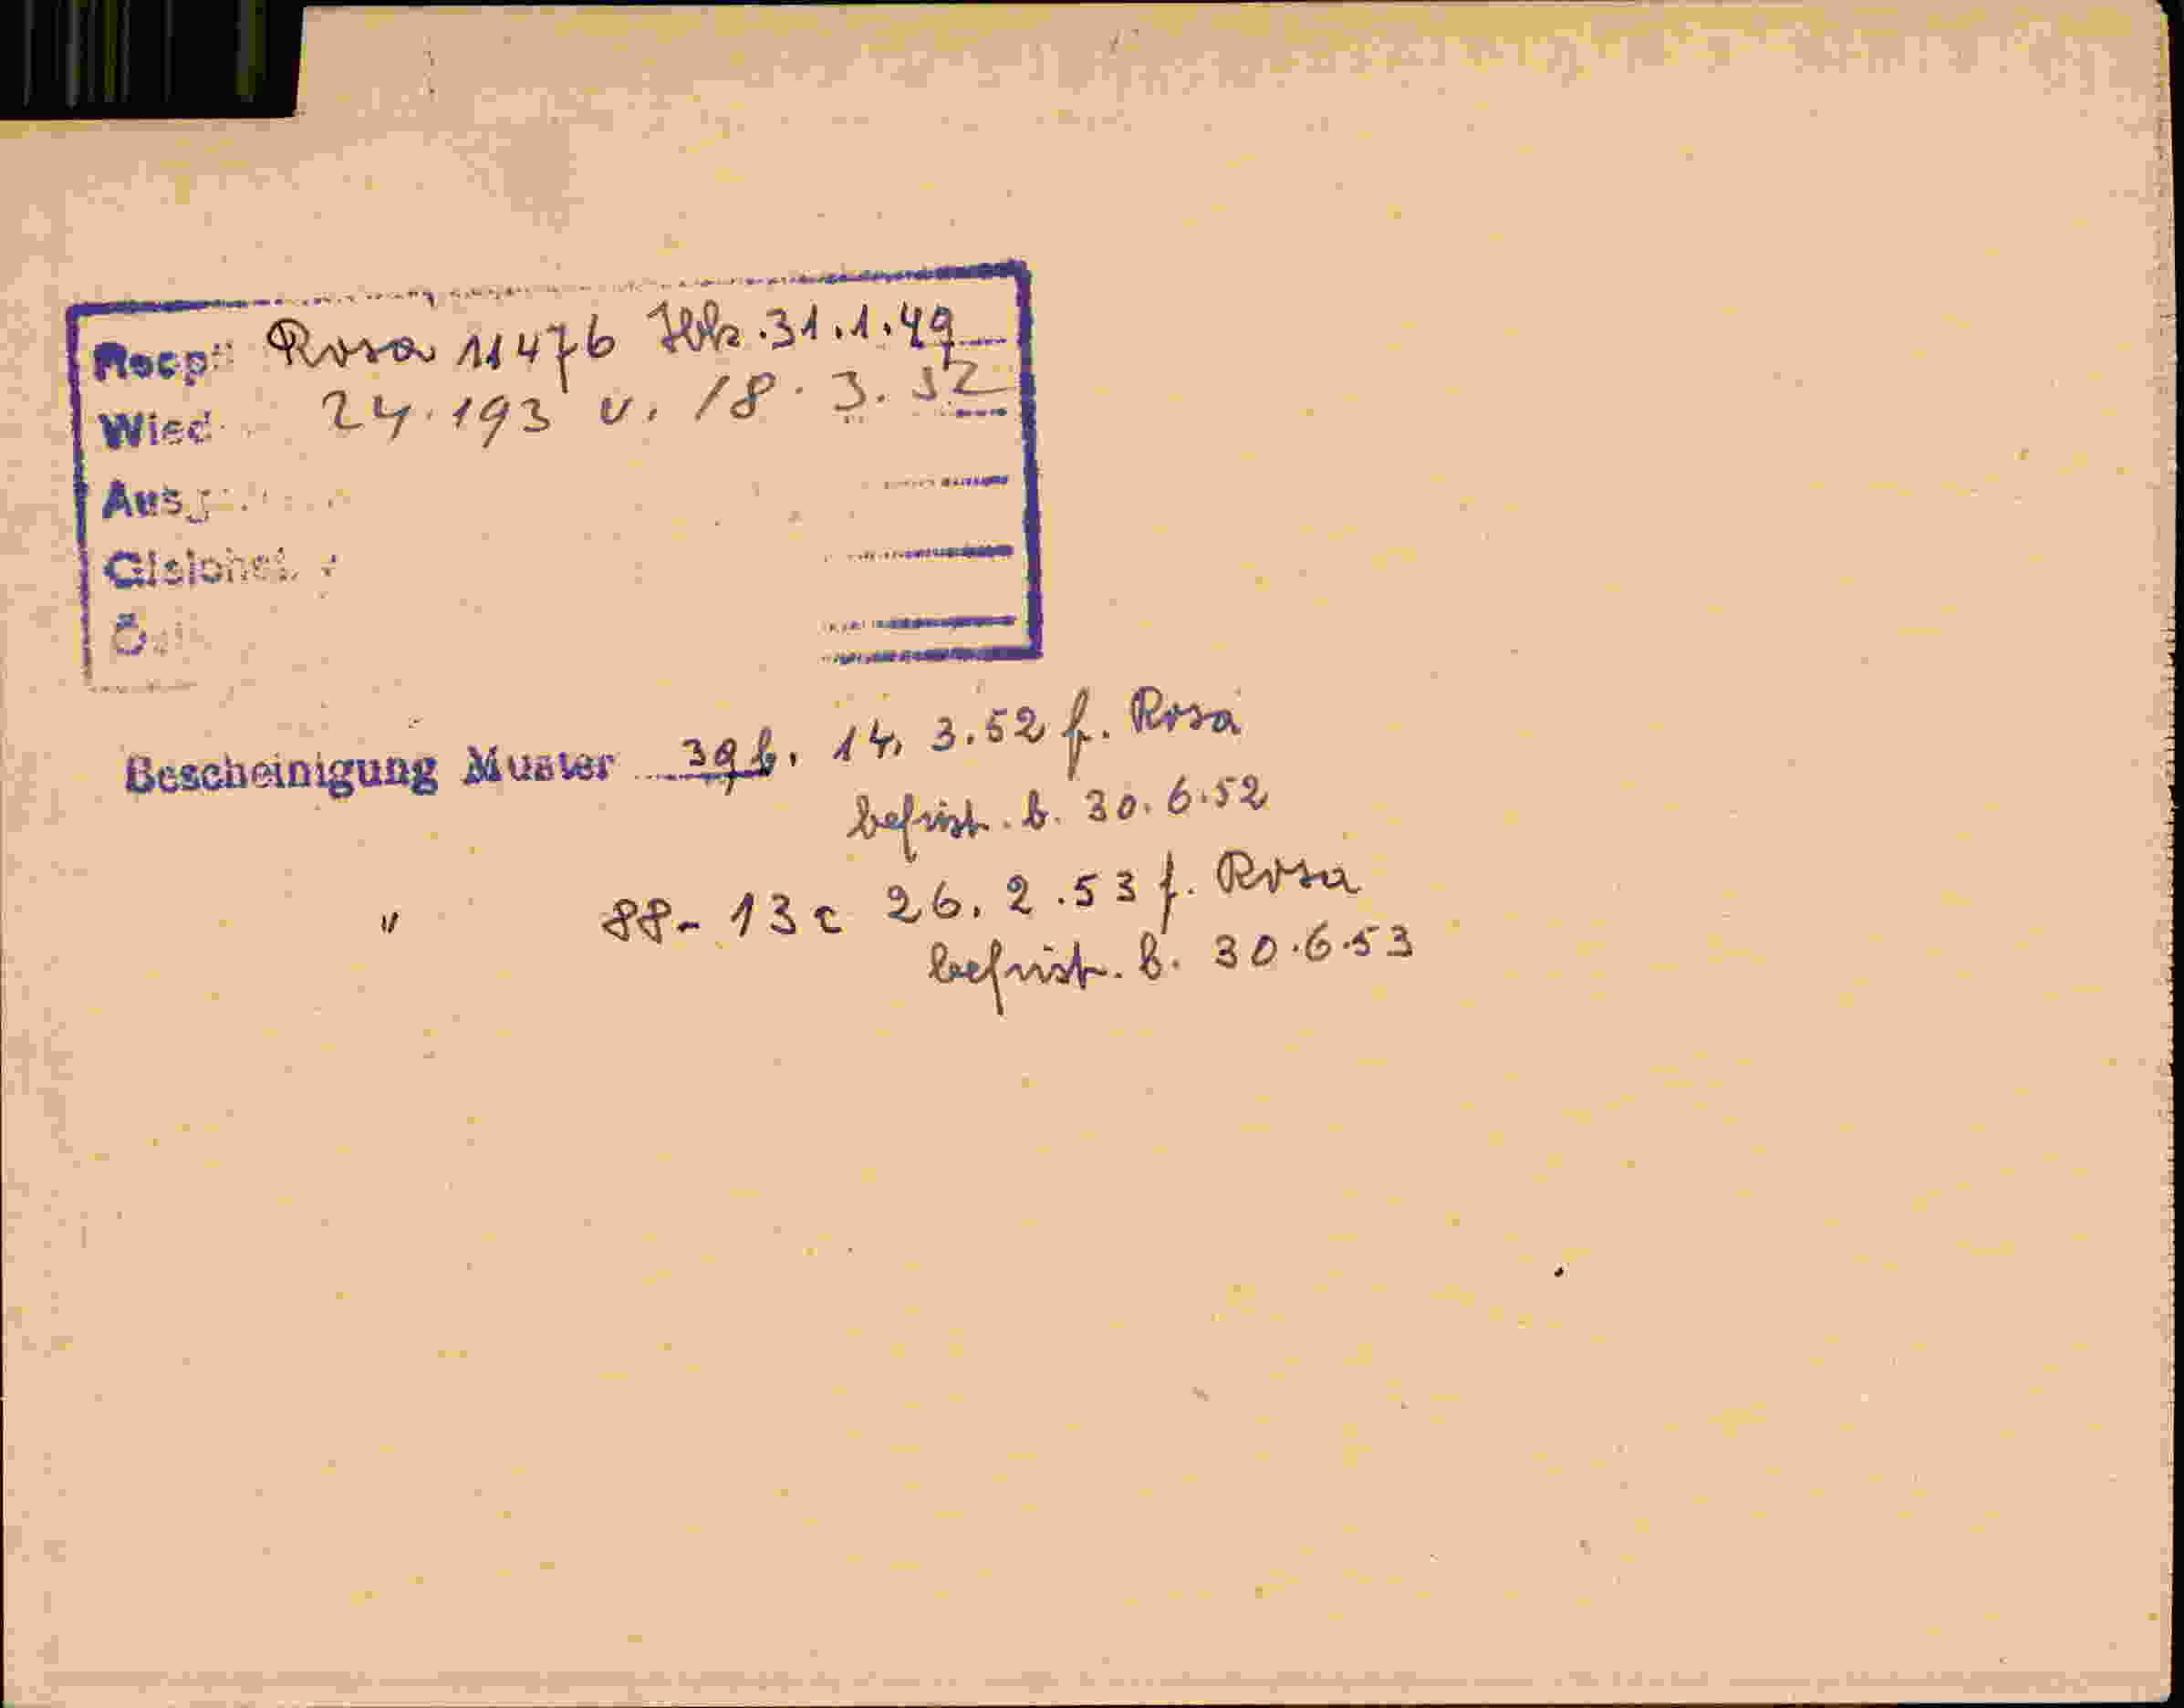 Rosa 11476 Hbk. 31.1.49
Wied 24.193 v. 18.3.52
Aus
Ö
Bescheinigung Muster 39 b. 14. 3. 52 f. Rosa
befrist. b. 30. 6. 52
" 88-13c 26. 2. 53 f. Rosa
befrist. b. 30. 6. 53